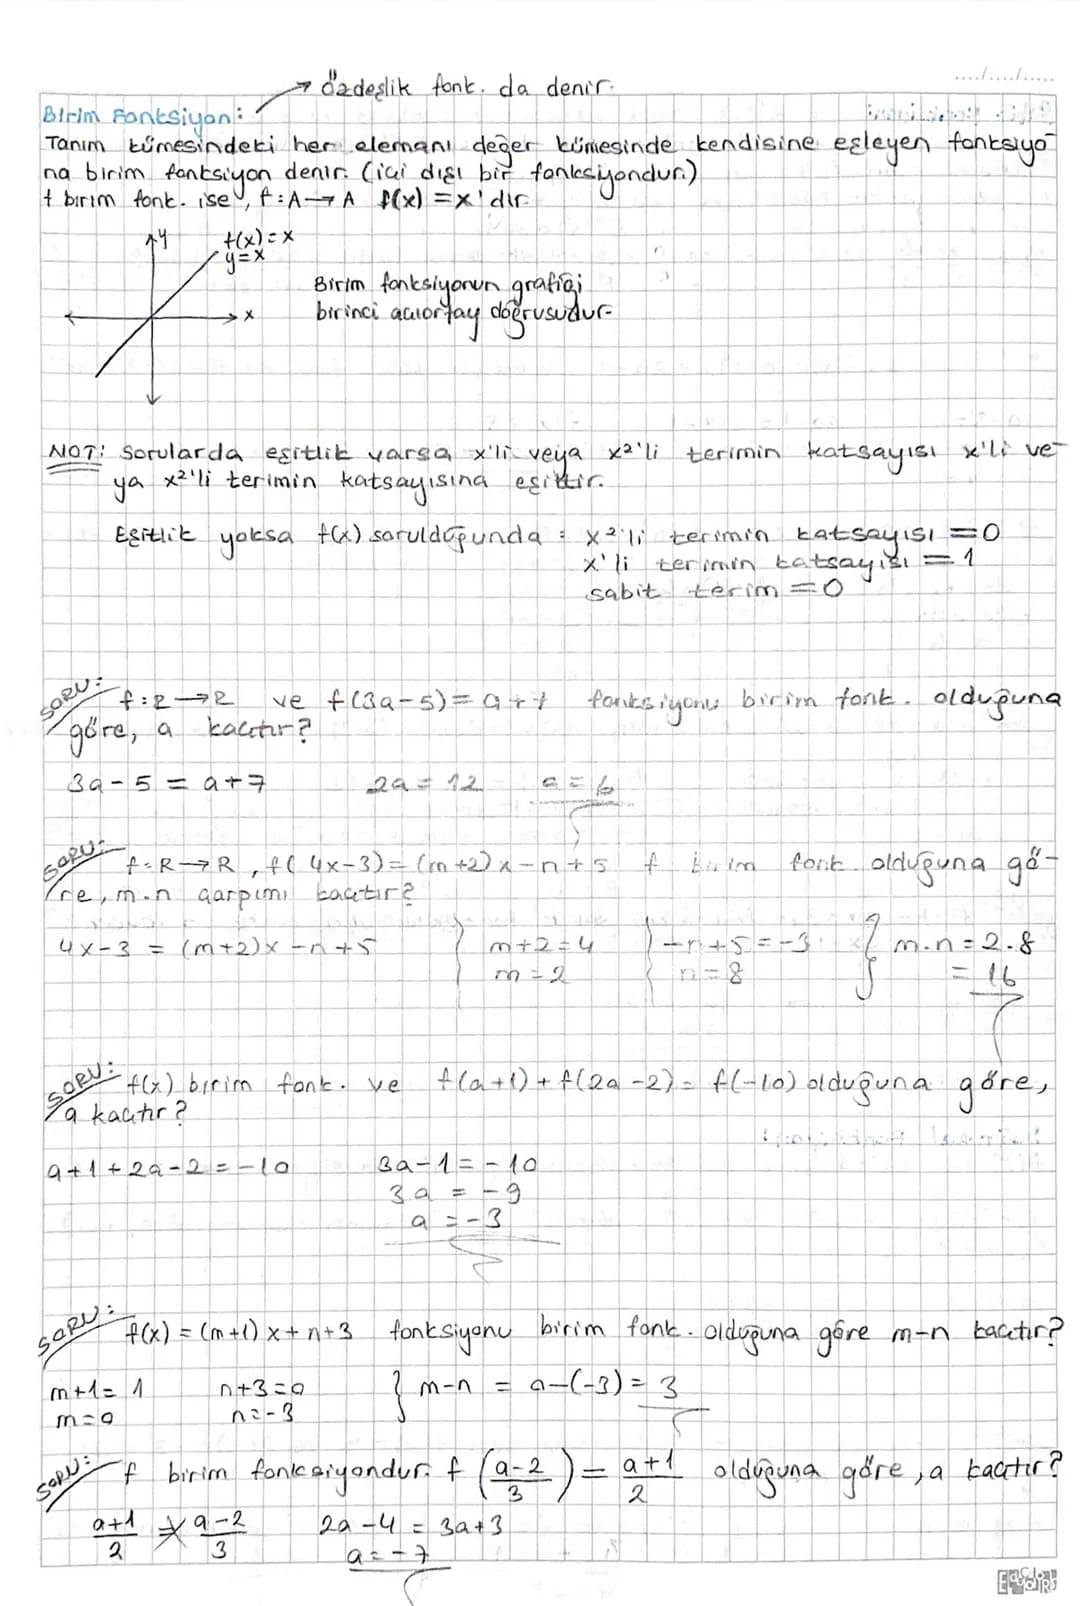 → özdeşlik fonk. da denir.
Birim Fonksiyon:
Tanım kümesindeki her elemanı değer kümesinde kendisine eşleyen fonksiyo-
na birim fonksiyon denir. (içi dışı bir fonksiyondur.)
f birim fonk. ise, f:A→A f(x)=x'dir.
y f(x)=x
y=x
x
Birim fonksiyonun grafiği
birinci açıortay doğrusudur.
NOT: Sorularda eşitlik varsa x'li veya x²'li terimin katsayısı x'li ve-
ya x²'li terimin katsayısına eşittir.
Eşitlik yoksa f(x) sorulduğunda : x²'li terimin katsayısı =0
x'li terimin katsayısı = 1
sabit terim =0
SORU: f:R→R ve f(3a-5)= a+7 fonksiyonu birim fonk. olduğuna
göre, a kaçtır?
3a-5 = a+7 2a = 12 a = 6
SORU: f:R→R, f(4x-3)=(m+2)x-n+5 f birim fonk. olduğuna gö-
re, m.n çarpımı kaçtır?
4x-3 = (m+2)x -n+5 m+2=4 -n+5=-3 m.n=2.8
m=2 n=8 = 16
SORU: f(x) birim fonk. ve f(a+1)+f(2a-2)= f(-10) olduğuna göre,
a kaçtır?
a+1+2a-2=-10 3a-1=-10
3a = -9
a = -3
SORU: f(x) = (m+1)x+n+3 fonksiyonu birim fonk. olduğuna göre m-n kaçtır?
m+1= 1 n+3=0 m-n = 0-(-3)= 3
m=0 n=-3
SORU: f birim fonksiyondur. f((a-2)/3) = (a+1)/2 olduğuna göre, a kaçtır?
(a+1)/2 = (a-2)/3 2a-4 = 3a+3
a=-7